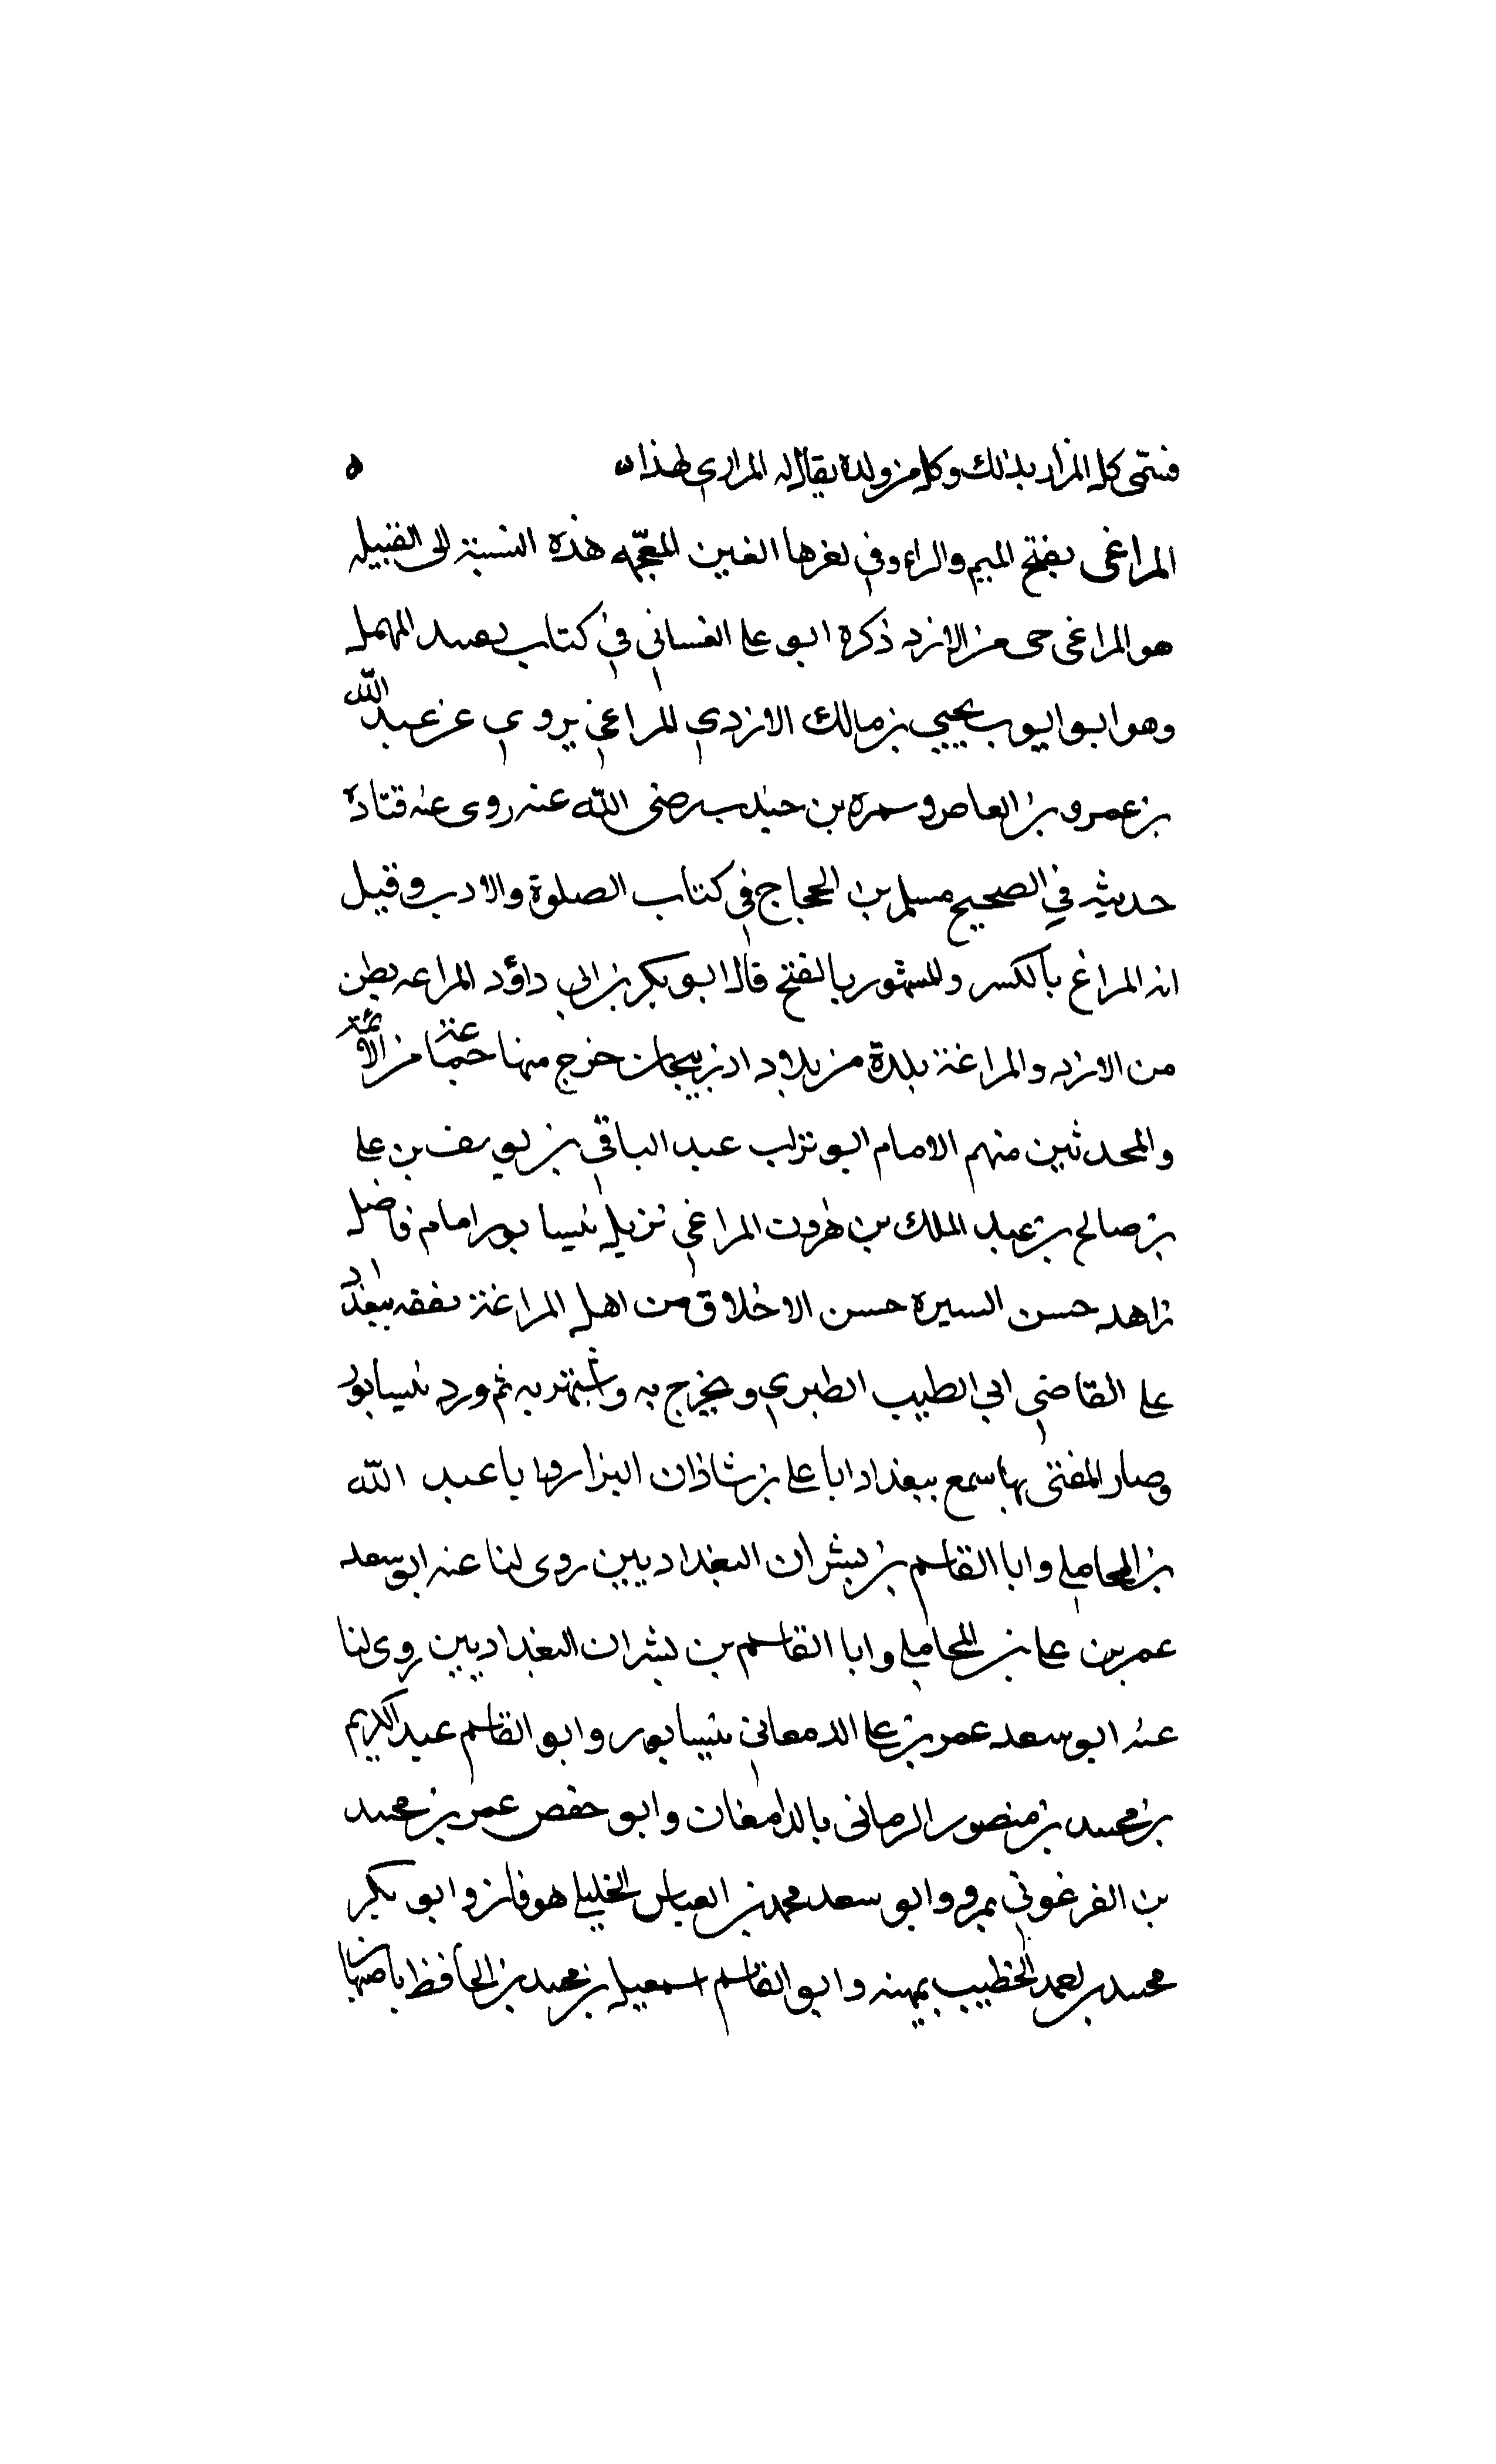 فسمى كل المرار بذلك وكل من ولده يقال له المراري لهذا ه
المراغى بفتح الميم والراء وفي اخرها الغين المعجمه هذه النسبة الى القبيله
هو المراغى حى من الازد ذكره ابو على الغساني في كتاب تقييد المهمل
وهو ابو ايوب يحيى بن مالك الازدي المراغي يروي عن عبد الله
بن عمرو بن العاص وسمرة بن جندب رضى الله عنه روى عنه قتادة
حديثه في الصحيح مسلم بن الحجاج في كتاب الصلوة والادب وقيل
انه المراغ بالكسر والمشهور بالفتح قال ابو بكر بن ابي داؤد المراغه بطن
من الازد والمراغة بلدة من بلاد اذربيجان خرج منها جماعة من الائمة
والمحدثين منهم الامام ابو تراب عبد الباقي بن يوسف بن على
بن صالح بن عبد الملك بن هرون المراغي نزيل نيسابور امام فاضل
زاهد حسن السيرة حسن الاخلاق من اهل المراغة تفقه ببغداد
على القاضي ابي الطيب الطبري وتخرج به واشتهر به ثم ورد نيسابور
وصار المفتى بها سمع ببغداد ابا على بن شاذان البزار وابا عبد الله
بن المحاملي وابا القاسم بن بشران البغداديين روى لنا عنه ابو سعد
عمر بن على بن المحاملي وابا القاسم بن بشران البغداديين روى لنا
عنه ابو سعد عمر بن على الدمغاني بنيسابور وابو القاسم عبد الكريم
بن محمد بن منصور الرمانى بالدامغان وابو حفص عمر بن محمد
بن الفرغوني بمرو وابو سعد محمد بن العباس الخليلي هوفان وابو بكر
محمد بن احمد الخطيب بميهنه وابو القاسم اسمعيل بن محمد بن الحافظ باصبهان